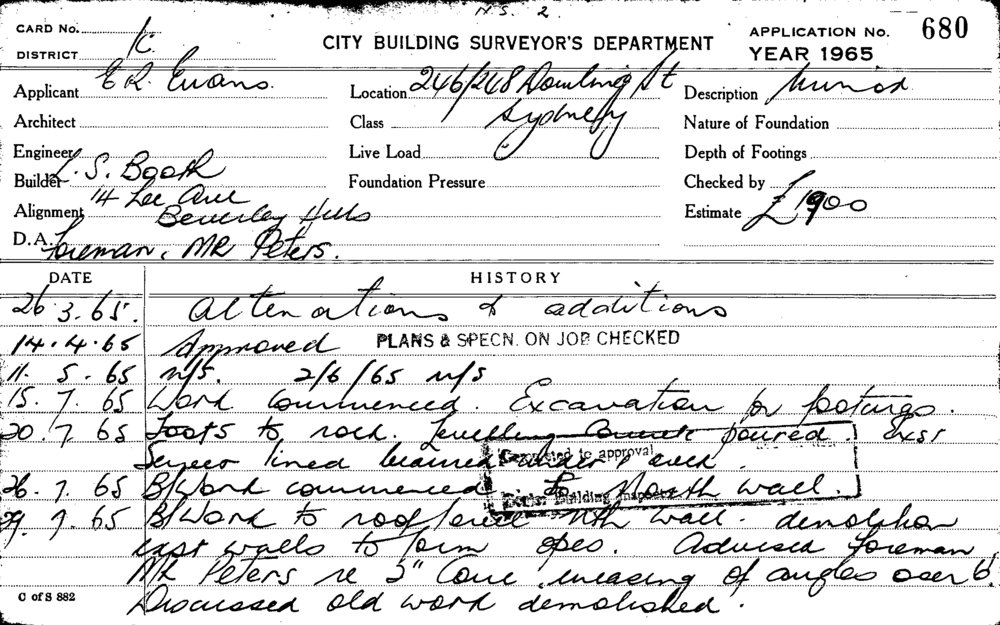 N.S. 2.
CARD No. K. CITY BUILDING SURVEYOR'S DEPARTMENT APPLICATION No. 680
DISTRICT YEAR 1965
Applicant E R. Evans. Location 246/248 Dowling St Description Minor
Architect Class Sydney Nature of Foundation
Engineer Live Load Depth of Footings
Builder L. S. Booth Foundation Pressure Checked by
Alignment 14 Lee Ave Beverley Hills Estimate £1900
D.A. Foreman, MR Peters.
DATE HISTORY
26.3.65. Alterations & additions
14.4.65 Approved PLANS & SPECN. ON JOB CHECKED
11.5.65 n/s. 2/6/65 n/s
15.7.65 Work commenced. Excavation for footings.
20.7.65 Foots to rock. Levelling poured.
Sewer lined
26.7.65 B/Work commenced to North wall.
to approval
Building Inspector
29.7.65 B/Work to roof nth wall. demolition
east walls to form opes. Advised foreman
Mr Peters re 2" Conc. encasing of angles over 6'.
C of S 882 Discussed old work demolished.